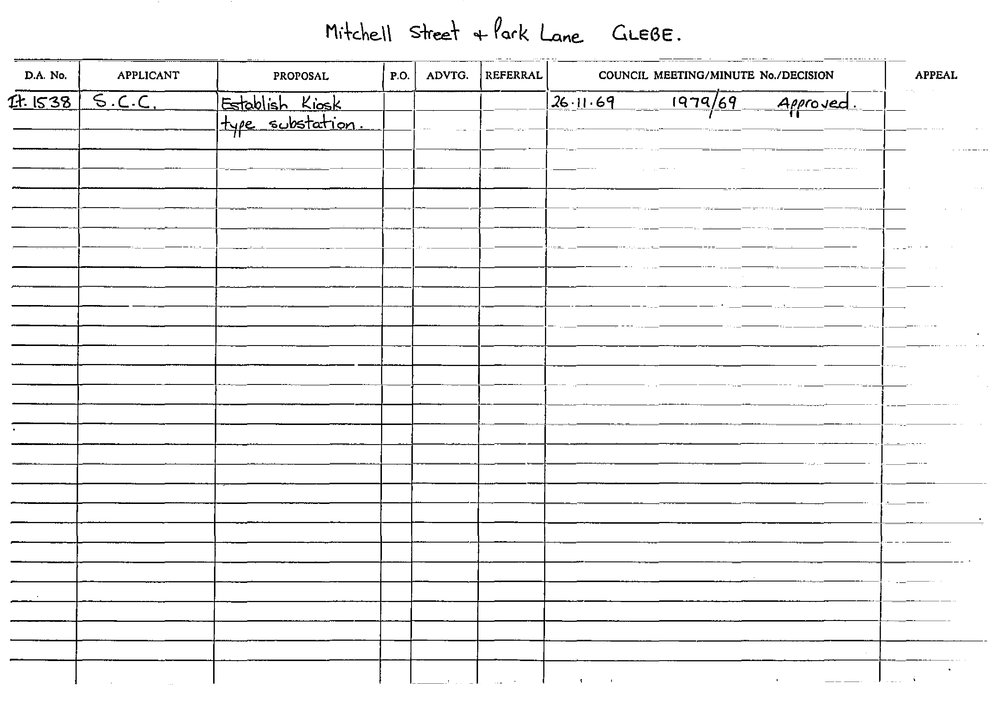 Mitchell Street + Park Lane GLEBE.
D.A. No. APPLICANT PROPOSAL P.O. ADVTG. REFERRAL COUNCIL MEETING/MINUTE No./DECISION APPEAL
It. 1538 S.C.C. Establish Kiosk 26.11.69 1979/69 Approved.
type substation.